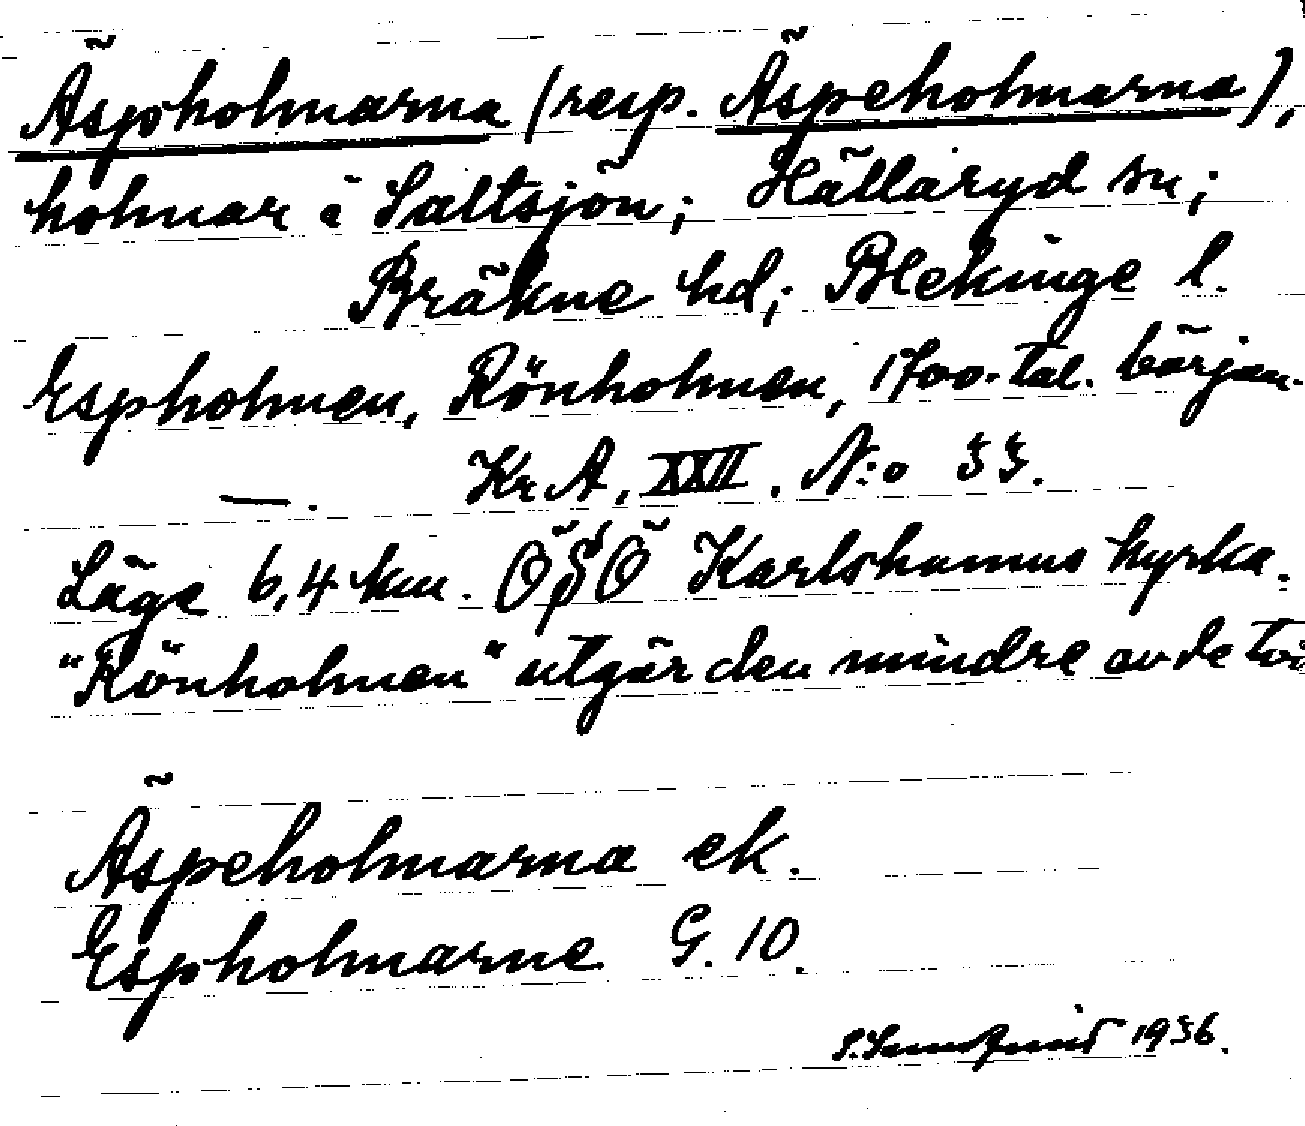 Äspholmarna (resp. Äspeholmarna),
holmar i Saltsjön; Hällaryd sn;
Bräkne hd; Blekinge l.
Espholmen, Rönholmen, 1700-tal. början.
—. KrA, XXII. N:o 33.
Läge 6,4 km. ÖSÖ Karlshamns kyrka.
"Rönholmen" utgör den mindre av de två
Äspeholmarna ek.
Espholmarne G. 10.
1936.